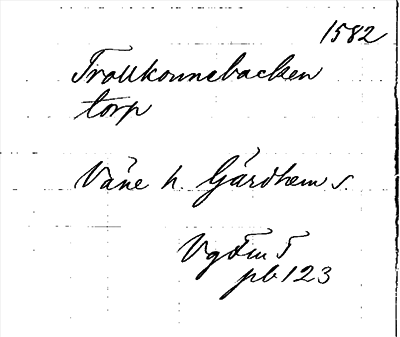 1582
Trollkonnebacken
torp
Väne h. Gärdhem s.
VgFmT
pb 123